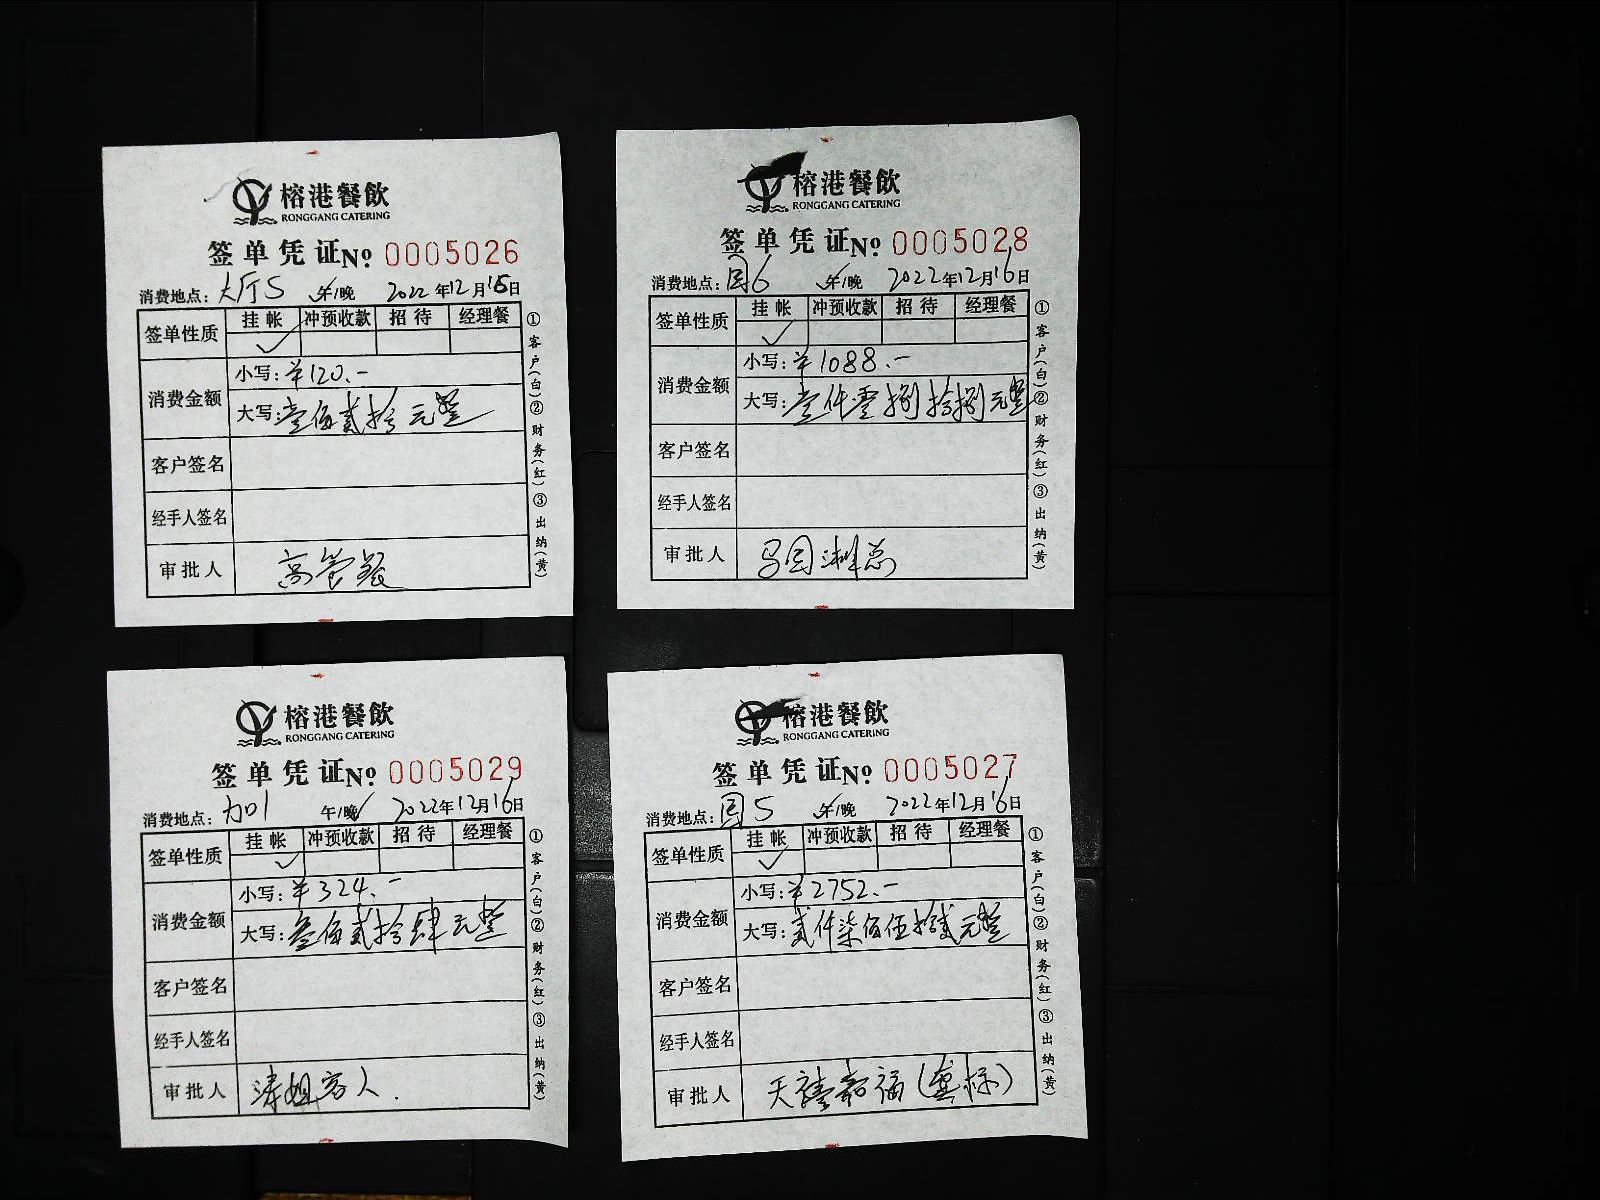 榕港餐飲
RONGGANG CATERING
签单凭证No 0005026
消费地点: 大厅5 午/晚 2022年12月16日
签单性质 挂帐 冲预收款 招待 经理餐
✓
消费金额 小写: ¥120.-
大写: 壹佰贰拾元整
客户签名
经手人签名
审批人 高管餐
①客户(白)②财务(红)③出纳(黄)
榕港餐飲
RONGGANG CATERING
签单凭证No 0005028
消费地点: 国6 午/晚 2022年12月16日
签单性质 挂帐 冲预收款 招待 经理餐
✓
消费金额 小写: ¥1088.-
大写: 壹仟零捌拾捌元整
客户签名
经手人签名
审批人
①客户(白)②财务(红)③出纳(黄)
榕港餐飲
RONGGANG CATERING
签单凭证No 0005029
消费地点: 加01 午/晚 2022年12月16日
签单性质 挂帐 冲预收款 招待 经理餐
✓
消费金额 小写: ¥324.-
大写: 叁佰贰拾肆元整
客户签名
经手人签名
审批人 涛姐客人.
①客户(白)②财务(红)③出纳(黄)
榕港餐飲
RONGGANG CATERING
签单凭证No 0005027
消费地点: 国5 午/晚 2022年12月16日
签单性质 挂帐 冲预收款 招待 经理餐
✓
消费金额 小写: ¥2752.-
大写: 贰仟柒佰伍拾贰元整
客户签名
经手人签名
审批人 天
①客户(白)②财务(红)③出纳(黄)